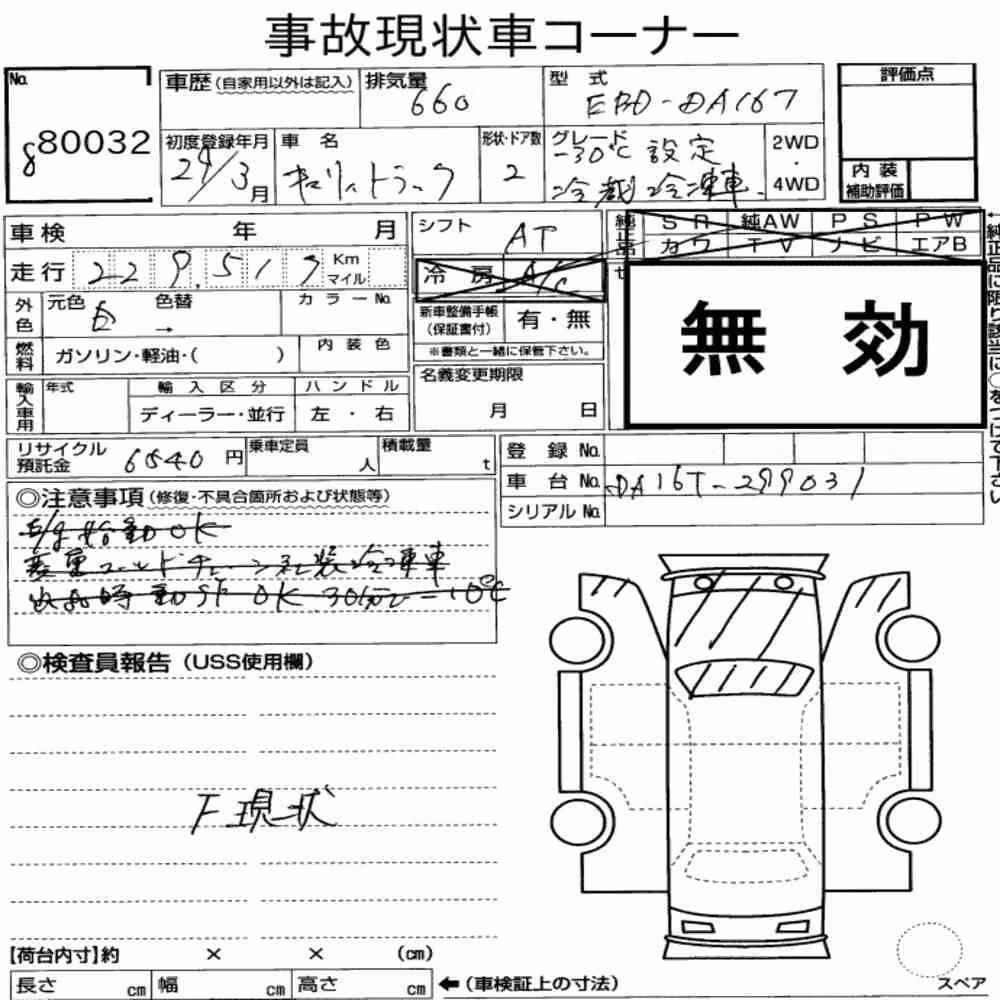 事故現状車コーナー
No. 880032
車歴(自家用以外は記入) 排気量 660 型式 EBD-DA16T 評価点
初度登録年月 29/3月 車名 キャリィトラック 形状・ドア数 2 グレード -30℃設定 冷蔵冷凍車 2WD・4WD 内装補助評価
車検 年 月 シフト AT 純 SR 純AW PS PW
正 カワ TV ナビ エアB
走行 229,517 Km マイル 冷房 A/C
外色 元色 白 色替 → カラーNo. 新車整備手帳(保証書付) 有・無
無効
燃料 ガソリン・軽油・( ) 内装色 ※書類と一緒に保管下さい。
輸入車用 年式 輸入区分 ハンドル 名義変更期限
ディーラー・並行 左・右 月 日
純正品に限り該当に○をつけて下さい
リサイクル預託金 6540円 乗車定員 人 積載量 t 登録No.
車台No. DA16T-299031
シリアルNo.
◎注意事項(修復・不具合箇所および状態等)
E/g始動OK
菱重コールドチェーン社装冷凍車
出品時動作OK 30分で-10℃
◎検査員報告(USS使用欄)
F現状
【荷台内寸】約 × × (cm)
長さ cm 幅 cm 高さ cm ←(車検証上の寸法)
スペア